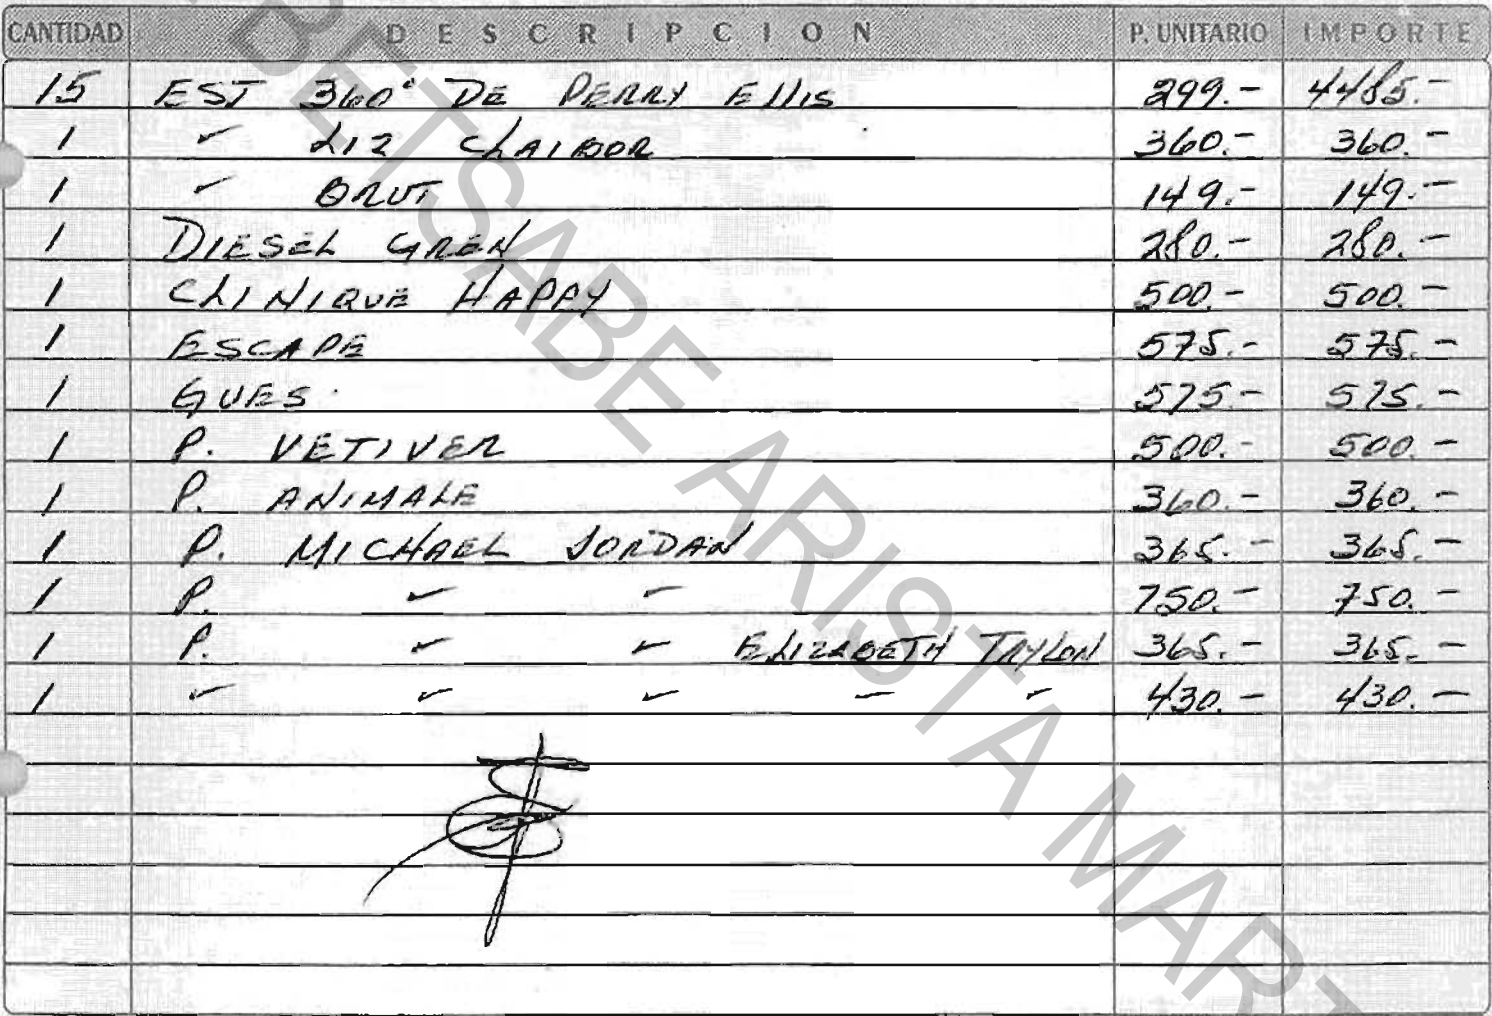 CANTIDAD DESCRIPCION P. UNITARIO IMPORTE
15 EST 360° DE PERRY ELLIS 299.- 4485.-
1 " LIZ CLAIBOR 360.- 360.-
1 " BRUT 149.- 149.-
1 DIESEL GREN 280.- 280.-
1 CLINIQUE HAPPY 500.- 500.-
1 ESCAPE 575.- 575.-
1 GUES. 575.- 575.-
1 P. VETIVER 500.- 500.-
1 P. ANIMALE 360.- 360.-
1 P. MICHAEL JORDAN 365.- 365.-
1 P. " " 750.- 750.-
1 P. " " ELIZABETH TAYLOR 365.- 365.-
1 " " " " " 430.- 430.-
BETSABE ARISTA MART